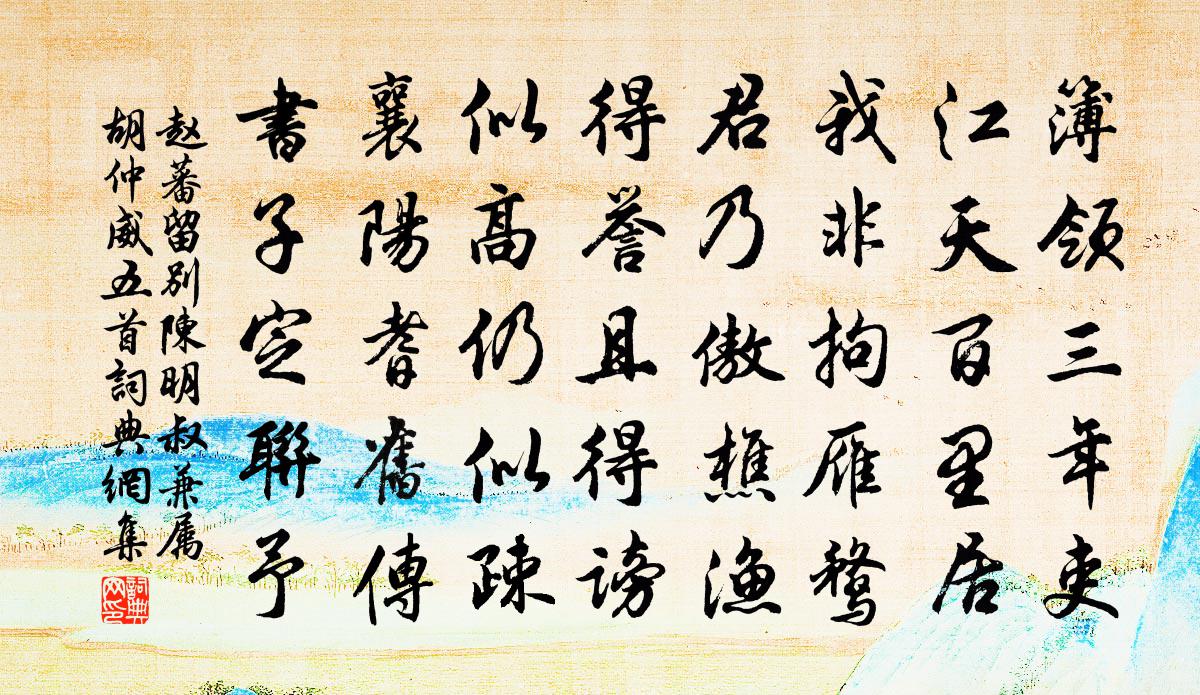 簿領三年吏
江天百里居
我非拘雁鶩
君乃傲樵漁
得誉且得謗
似高仍似疎
襄陽耆舊傳
書子定聯予
赵蕃留别陳明叔兼属
胡仲威五首詞典網集